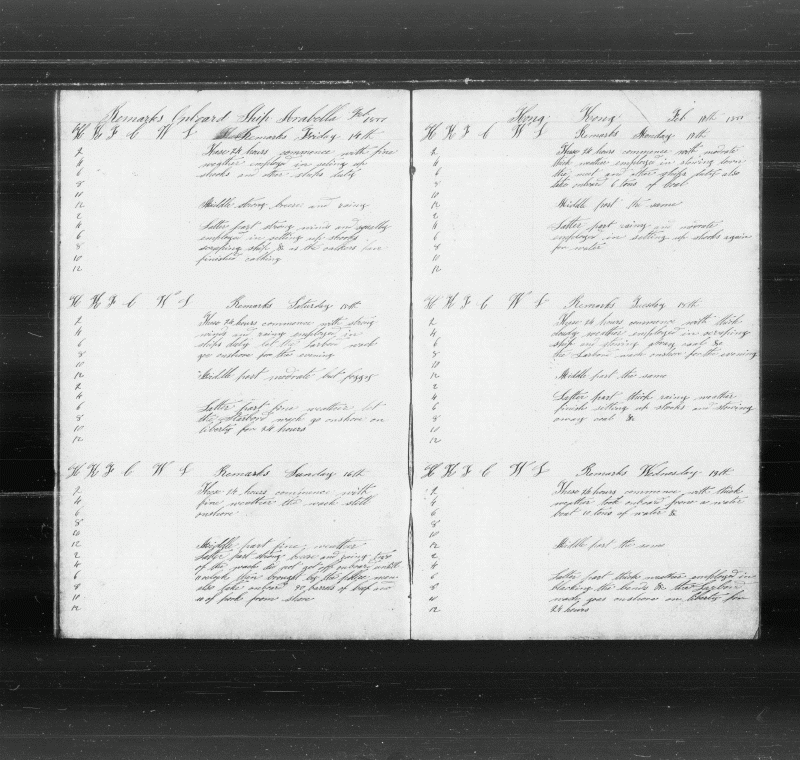 Remarks Onboard Ship Arabella Feb
H K F C W L Remarks Friday 14th
2
4
6
8
10
12
2
4
6
8
10
12
These 24 hours commence with fine
weather employed in setting up
shooks and other ships duty
Middle strong breeze and rainy
Latter part strong winds and squally
employed in setting up shooks
scraping ship &c as the calkers have
finished calking
H K F C W L Remarks Saturday 15th
2
4
6
8
10
12
2
4
6
8
10
12
These 24 hours commence with strong
winds and rainy employed in
ships duty let the Larbord watch
go onshore for this evening
Middle part moderate but foggy
Latter part fine weather let
the Starbord watch go onshore on
liberty for 24 hours
H K F C W L Remarks Sunday 16th
2
4
6
8
10
12
2
4
6
8
10
12
These 24 hours commence with
fine weather the watch still
onshore
Middle part fine weather
Latter part strong breeze and rainy
of the watch do not get off onboard until
brought by the police men
also take onboard barrels of beef and
10 of pork from shore
Hong Kong Feb 17th
H K F C W L Remarks Monday 17th
2
4
6
8
10
12
2
4
6
8
10
12
These 24 hours commence with moderate
thick weather employed in stowing down
the meat and other ships duty also
take onboard 6 tons of coal
Middle part the same
Latter part rainy and moderate
employed in setting up shooks again
for water
H K F C W L Remarks Tuesday 18th
2
4
6
8
10
12
2
4
6
8
10
12
These 24 hours commence with thick
cloudy weather employed in scraping
ship and stowing away coal &c
the Larbord watch onshore for the evening
Middle part the same
Latter part thick rainy weather
finish setting up shooks and stowing
away coal &c
H K F C W L Remarks Wednesday 19th
2
4
6
8
10
12
2
4
6
8
10
12
These 24 hours commence with thick
weather took onboard from a water
boat 11 tons of water &
Middle part the same
Latter part thick weather employed in
blacking the bends &c the Larbord
watch goes onshore on liberty for
24 hours